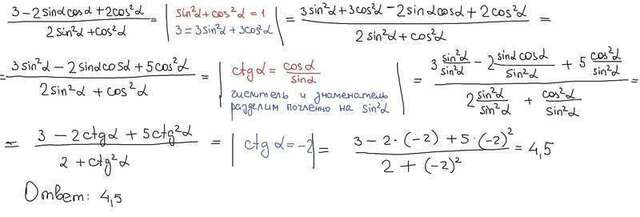 (3 - 2sinαcosα + 2cos²α)/(2sin²α + cos²α) = | sin²α + cos²α = 1 3 = 3sin²α + 3cos²α | = (3sin²α + 3cos²α - 2sinαcosα + 2cos²α)/(2sin²α + cos²α) =
= (3sin²α - 2sinαcosα + 5cos²α)/(2sin²α + cos²α) = | ctgα = cosα/sinα числитель и знаменатель разделим почленно на sin²α | = (3 sin²α/sin²α - 2 sinαcosα/sin²α + 5 cos²α/sin²α)/(2 sin²α/sin²α + cos²α/sin²α) =
= (3 - 2ctgα + 5ctg²α)/(2 + ctg²α) = | ctgα = -2 | = (3 - 2·(-2) + 5·(-2)²)/(2 + (-2)²) = 4,5
Ответ: 4,5